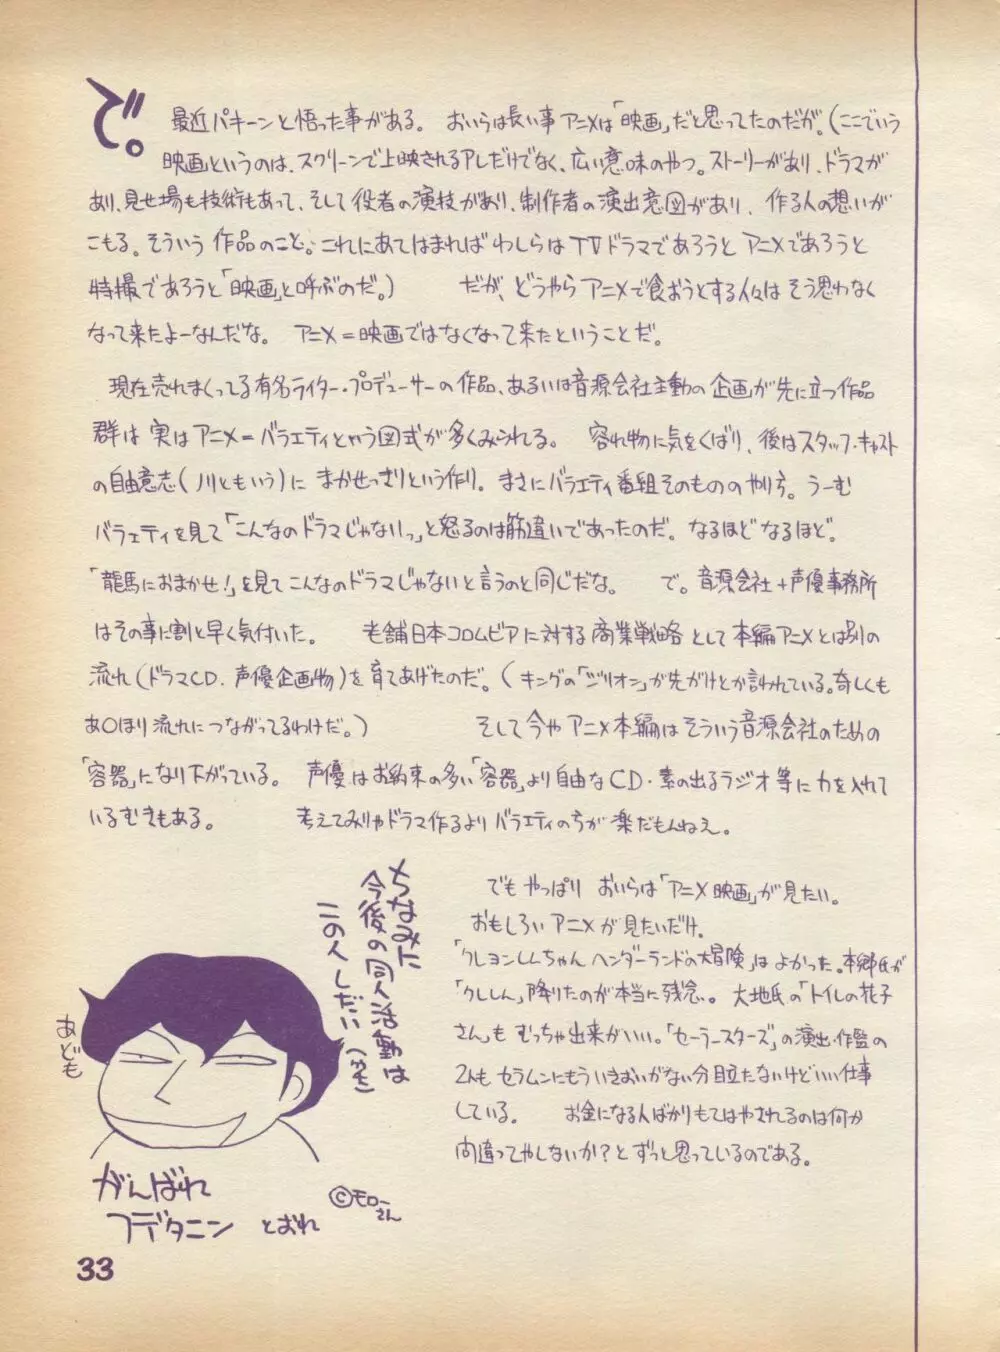 で。 最近パキーンと悟った事がある。 おいらは長い事アニメは「映画」だと思ってたのだが。(ここでいう
映画というのは、スクリーンで上映されるアレだけでなく、広い意味のやつ。ストーリーがあり、ドラマが
あり、見せ場も技術もあって、そして役者の演技があり、制作者の演出意図があり、作る人の想いが
こもる。そういう作品のこと。これにあてはまればわしらはTVドラマであろうとアニメであろうと
特撮であろうと「映画」と呼ぶのだ。) だが、どうやらアニメで食おうとする人々はそう思わなく
なって来たよーなんだな。 アニメ=映画ではなくなって来たということだ。
現在売れまくってる有名ライター・プロデューサーの作品、あるいは音源会社主動の企画が先に立つ作品
群は実はアニメ=バラエティという図式が多くみられる。 容れ物に気をくばり、後はスタッフ・キャスト
の自由意志(ノリともいう)にまかせっきりという作り。まさにバラエティ番組そのもののやり方。うーむ
バラェティを見て「こんなのドラマじゃないっ」と怒るのは筋違いであったのだ。なるほどなるほど。
「龍馬におまかせ!」を見てこんなのドラマじゃないと言うのと同じだな。 で。音源会社+声優事務所
はその事に割と早く気付いた。 老舗日本コロムビアに対する商業戦略として本編アニメとは別の
流れ(ドラマCD、声優企画物)を育てあげたのだ。(キングの「ジリオン」が先がけとか言われている。奇しくも
あ〇ほり流れにつながってるわけだ。) そして今やアニメ本編はそういう音源会社のための
「容器」になり下がっている。 声優はお約束の多い「容器」より自由なCD・素の出るラジオ等に力を入れて
いるむきもある。 考えてみりゃドラマ作るよりバラエティの方が楽だもんねえ。
でもやっぱりおいらは「アニメ映画」が見たい。
おもしろいアニメが見たいだけ。
「クレヨンしんちゃんヘンダーランドの大冒険」はよかった。本郷氏が
「クレしん」降りたのが本当に残念。大地氏の「トイレの花子
さん」もむっちゃ出来がいい。「セーラースターズ」の演出・作監の
2人もセラムンにもういきおいがない分目立たないけどいい仕事
している。 お金になる人ばかりもてはやされるのは何か
間違ってやしないか?とずっと思っているのである。
ちなみに
今後の同人活動は
この人しだい
あども
がんばれ
フデタニン とおれ
©モローさん
33